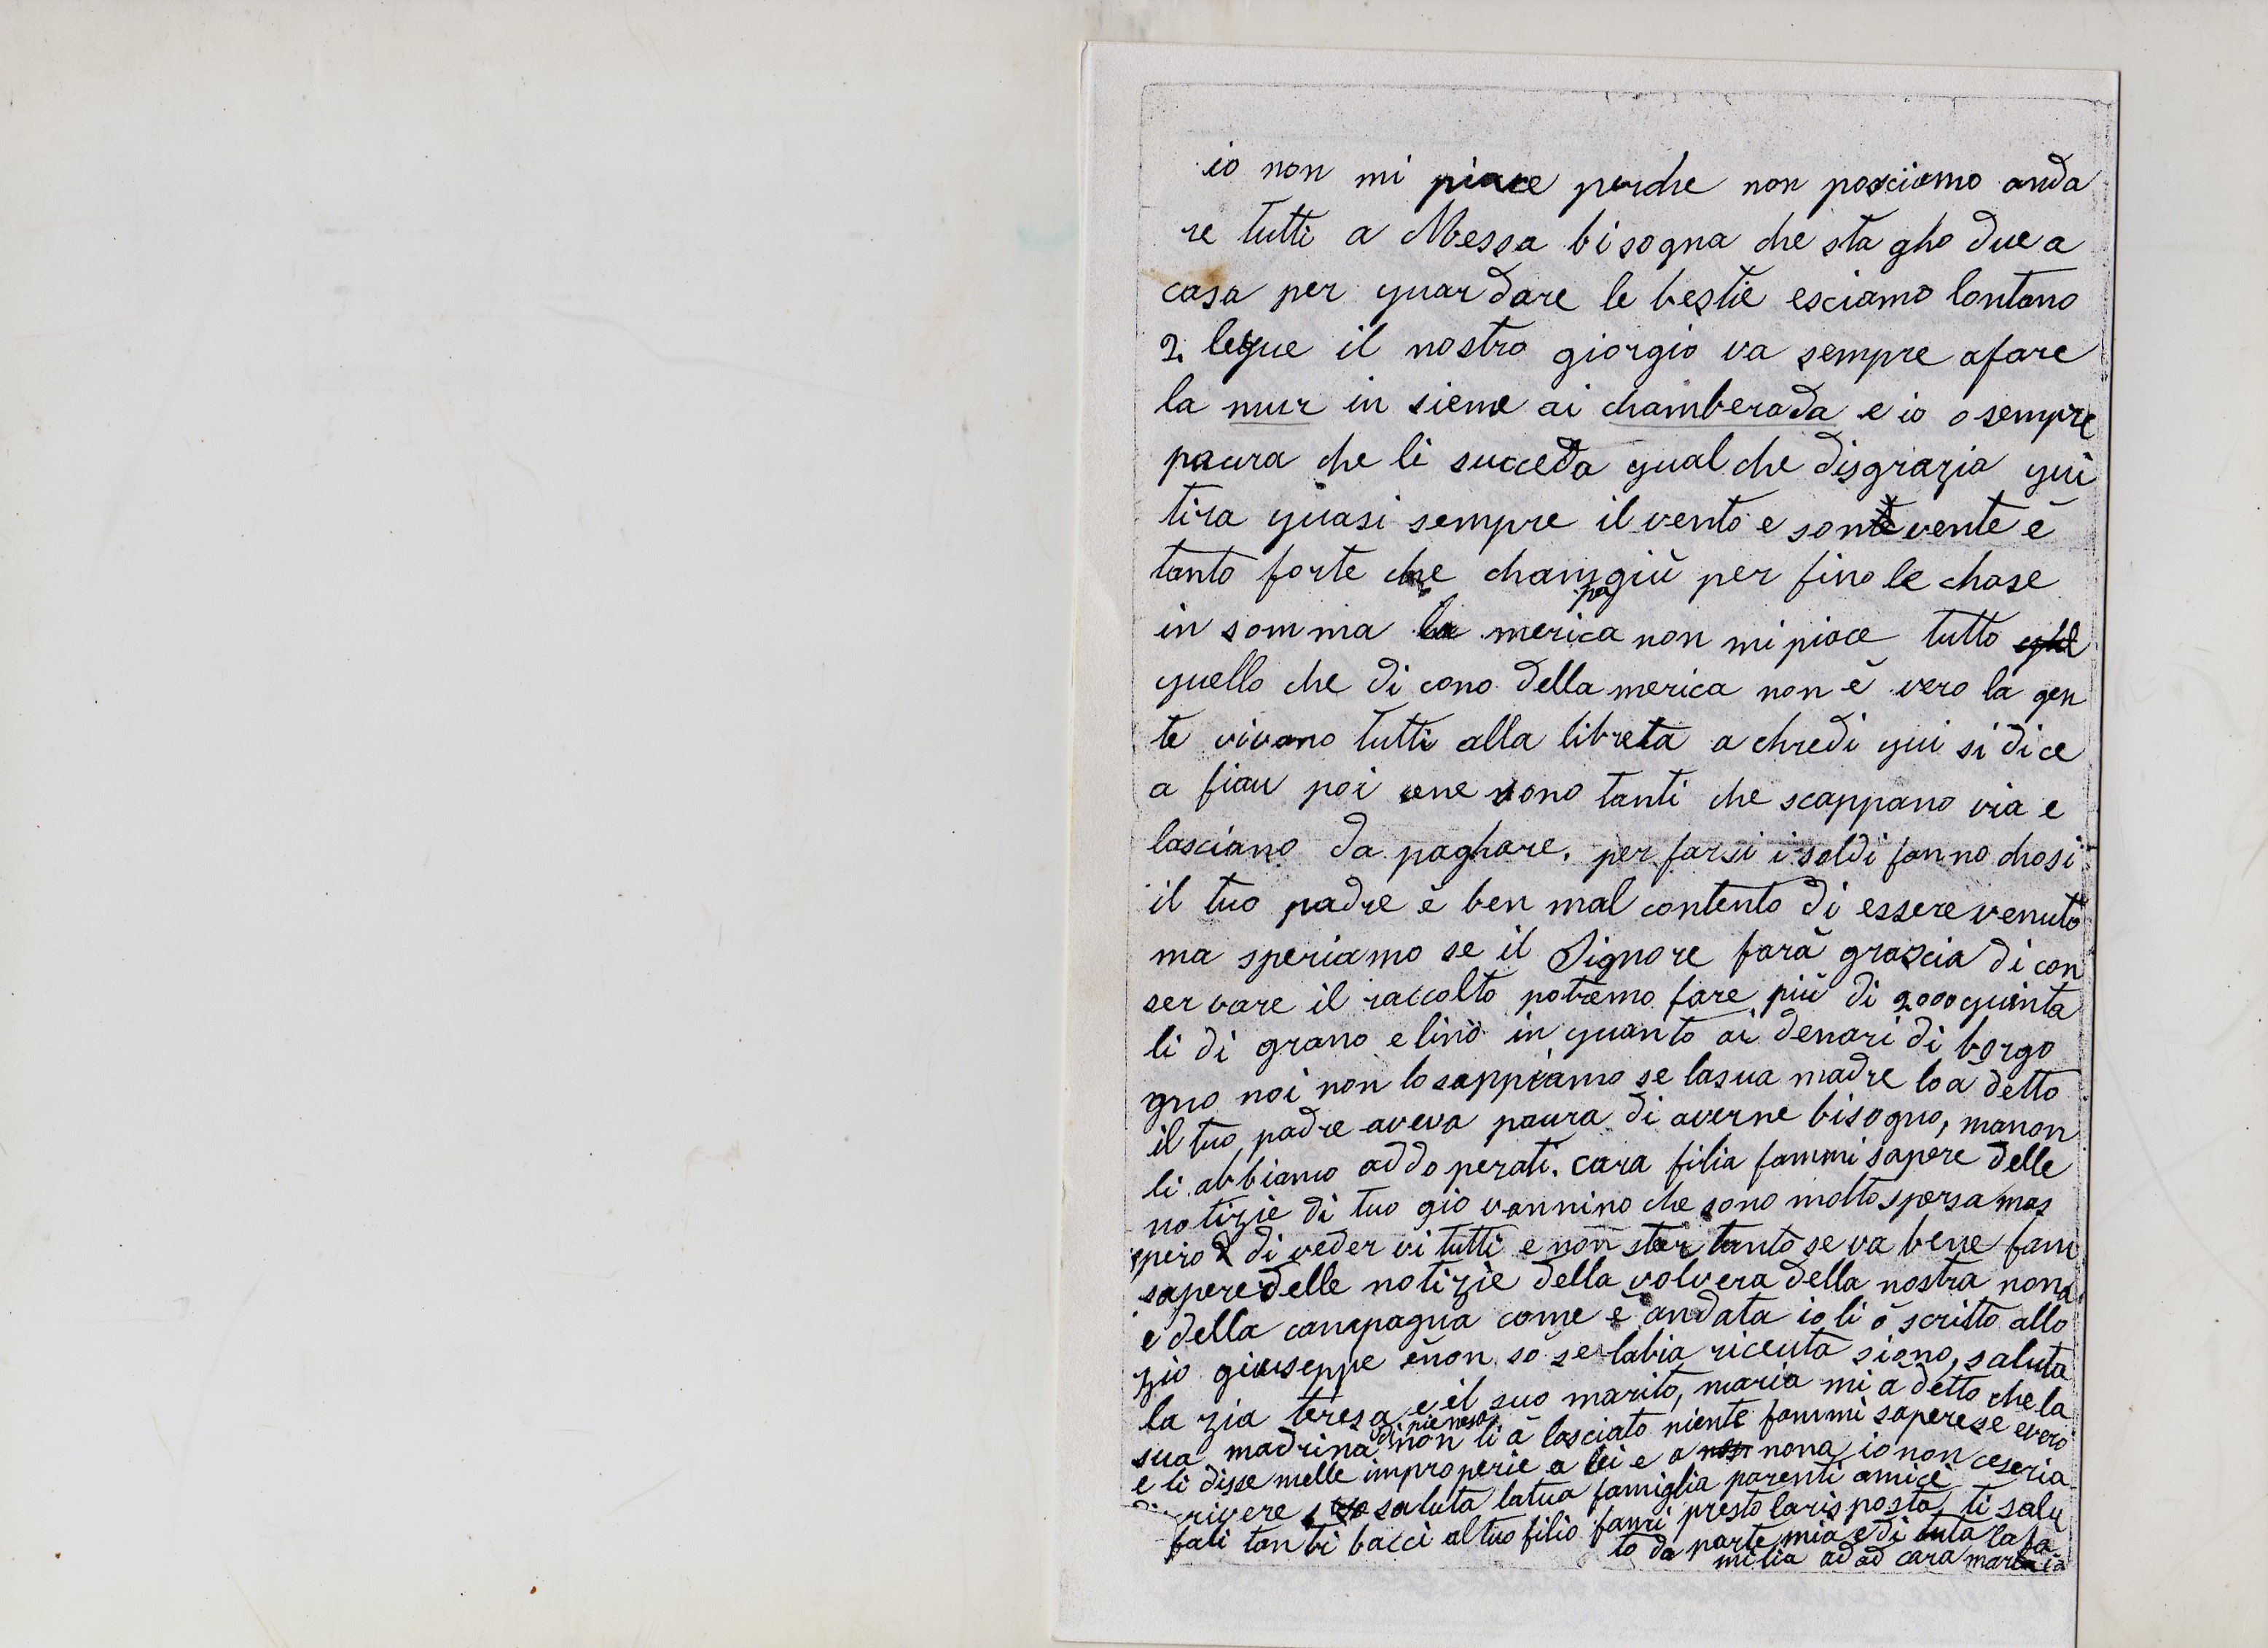 io non mi piace perche non posciamo anda
re tutti a Messa bisogna che sta gho due a
casa per guardare le bestie esciamo lontano
2. legue il nostro giorgio va sempre afare
la mur in sieme ai chamberada e io o sempre
paura che li succeda qualche disgrazia qui
tira quasi sempre il vento e sonte vente è
tanto forte che champa giù per fino le chase
in somma la merica non mi piace tutto
quello che di cono della merica non è vero la gen
te vivano tutti alla libreta a chredi qui si dice
a fiau poi ene sono tanti che scappano via e
lasciano da paghare. per farsi i soldi fanno chosi
il tuo padre è ben mal contento di essere venuto
ma speriamo se il Signore farà grascia di con
servare il raccolto potremo fare più di 2000 quinta
li di grano e lino in quanto ai denari di borgo
gno noi non lo sappiamo se lasua madre lo à detto
il tuo padre aveva paura di averne bisogno, manon
li abbiamo addoperati. cara filia fammi sapere delle
notizie di tuo gio vannino che sono molto spersa mas
pero di veder vi tutti e non star tanto se va bene fam
sapere delle notizie della volvera della nostra nona
e della campagna come è andata io li ò scritto allo
zio giuseppe e non sò se labia riceuta siono, saluta
la zia teresa e il suo marito, maria mi à detto che la
sua madrina di pieneso non li à lasciato niente fammi sapere se evero
e li disse melle improperie a lei e a nona, io non ceseria
di rivere saluta latua famiglia parenti amici
fali tanti bacci al tuo filio fami presto larisposta, ti salu
to da parte mia e di tuta la fa
milia ad ad cara maria